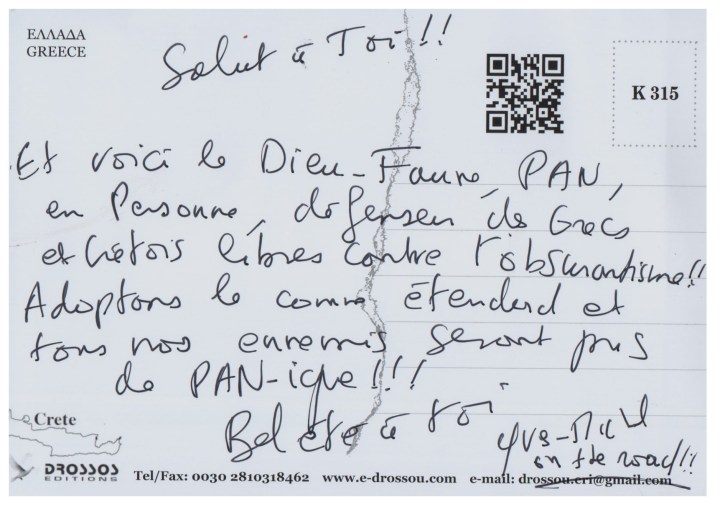 ΕΛΛΑΔΑ
GREECE
Salut à Toi!!
K 315
Et voici le Dieu-Faune, PAN,
en Personne, défenseur de Grecs
et Crétois libres contre l'obscurantisme!!
Adoptons le comme étendard et
tous nos ennemis seront pris
de PAN-ique!!!
Bel été à toi.
Yves-
on the road!!
Crete
DROSSOS
EDITIONS
Tel/Fax: 0030 2810318462 www.e-drossou.com e-mail: drossou.cri@gmail.com